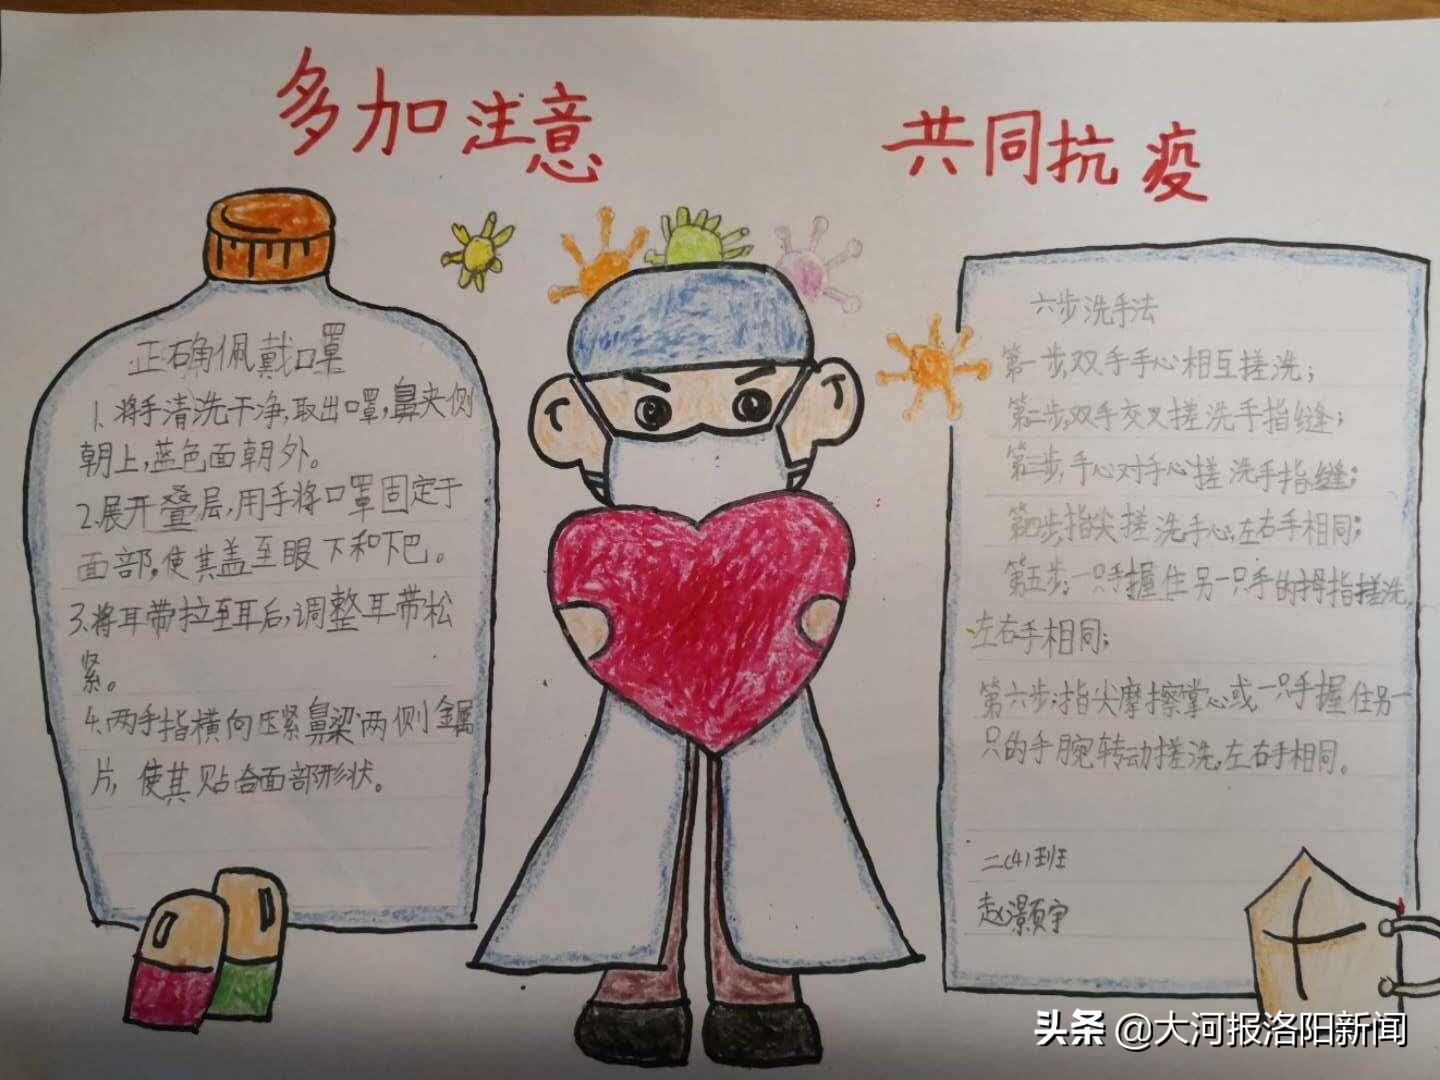 多加注意
共同抗疫
正确佩戴口罩
1.将手清洗干净,取出口罩,鼻夹侧
朝上,蓝色面朝外。
2.展开叠层,用手将口罩固定于
面部,使其盖至眼下和下巴。
3.将耳带拉至耳后,调整耳带松
紧。
4.两手指横向压紧鼻梁两侧金属
片,使其贴合面部形状。
六步洗手法
第一步,双手手心相互搓洗;
第二步,双手交叉搓洗手指缝;
第三步,手心对手心搓洗手指缝;
第四步,指尖搓洗手心,左右手相同;
第五步,一只手握住另一只手的拇指搓洗,
左右手相同;
第六步,指尖摩擦掌心或一只手握住另一
只的手腕转动搓洗,左右手相同。
二(4)班
赵灏宇
头条 @大河报洛阳新闻